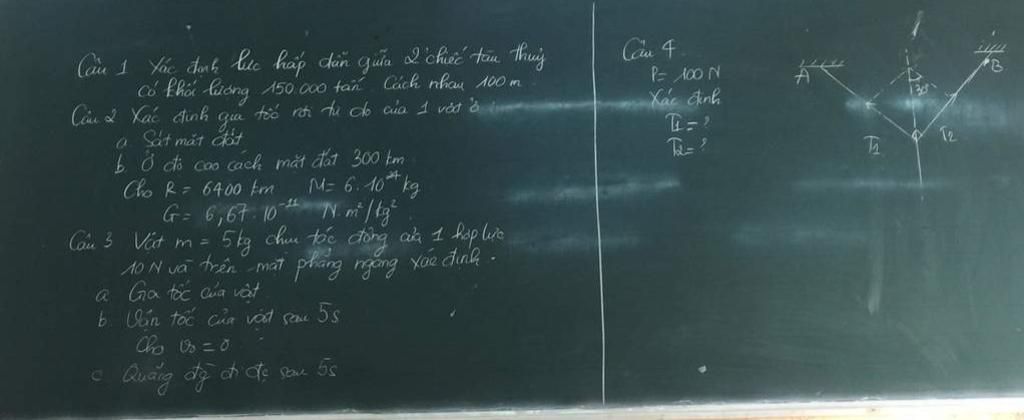 Câu 1 Xác định lực hấp dẫn giữa 2 chiếc tàu thuỷ
có khối lượng 150.000 tấn Cách nhau 100 m
Câu 2 Xác định gia tốc rơi tự do của 1 vật ở
a Sát mặt đất
b. Ở độ cao cách mặt đất 300 km
Cho R = 6400 km M = 6.10²⁴ kg
G = 6,67.10⁻¹¹ N.m²/kg²
Câu 3 Vật m = 5kg chịu tác động của 1 hợp lực
10 N và trên mặt phẳng ngang xác định.
a Gia tốc của vật
b Vận tốc của vật sau 5s
Cho v₀ = 0
c Quãng đg đi đc sau 5s
Câu 4
P = 100 N
Xác định
T₁ = ?
T₂ = ?
A
B
30°
T₁
T₂